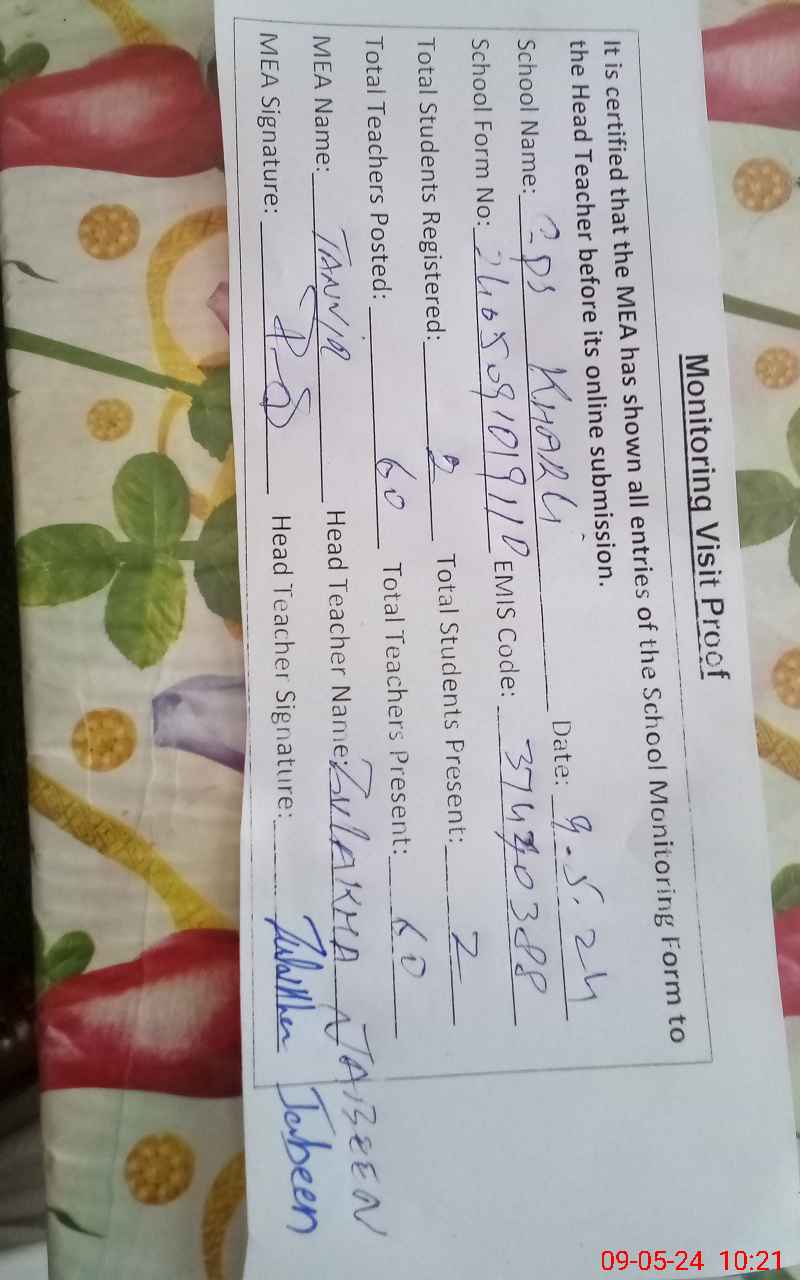 Monitoring Visit Proof
It is certified that the MEA has shown all entries of the School Monitoring Form to
the Head Teacher before its online submission.
School Name: GPS KHARLI Date: 9.5.24
School Form No: EMIS Code: 37440388
Total Students Registered: 2 Total Students Present: 2
Total Teachers Posted: 60 Total Teachers Present: 60
MEA Name: TANVIR Head Teacher Name: ZULAKHA JABEEN
MEA Signature: Head Teacher Signature: Jabeen
09-05-24 10:21